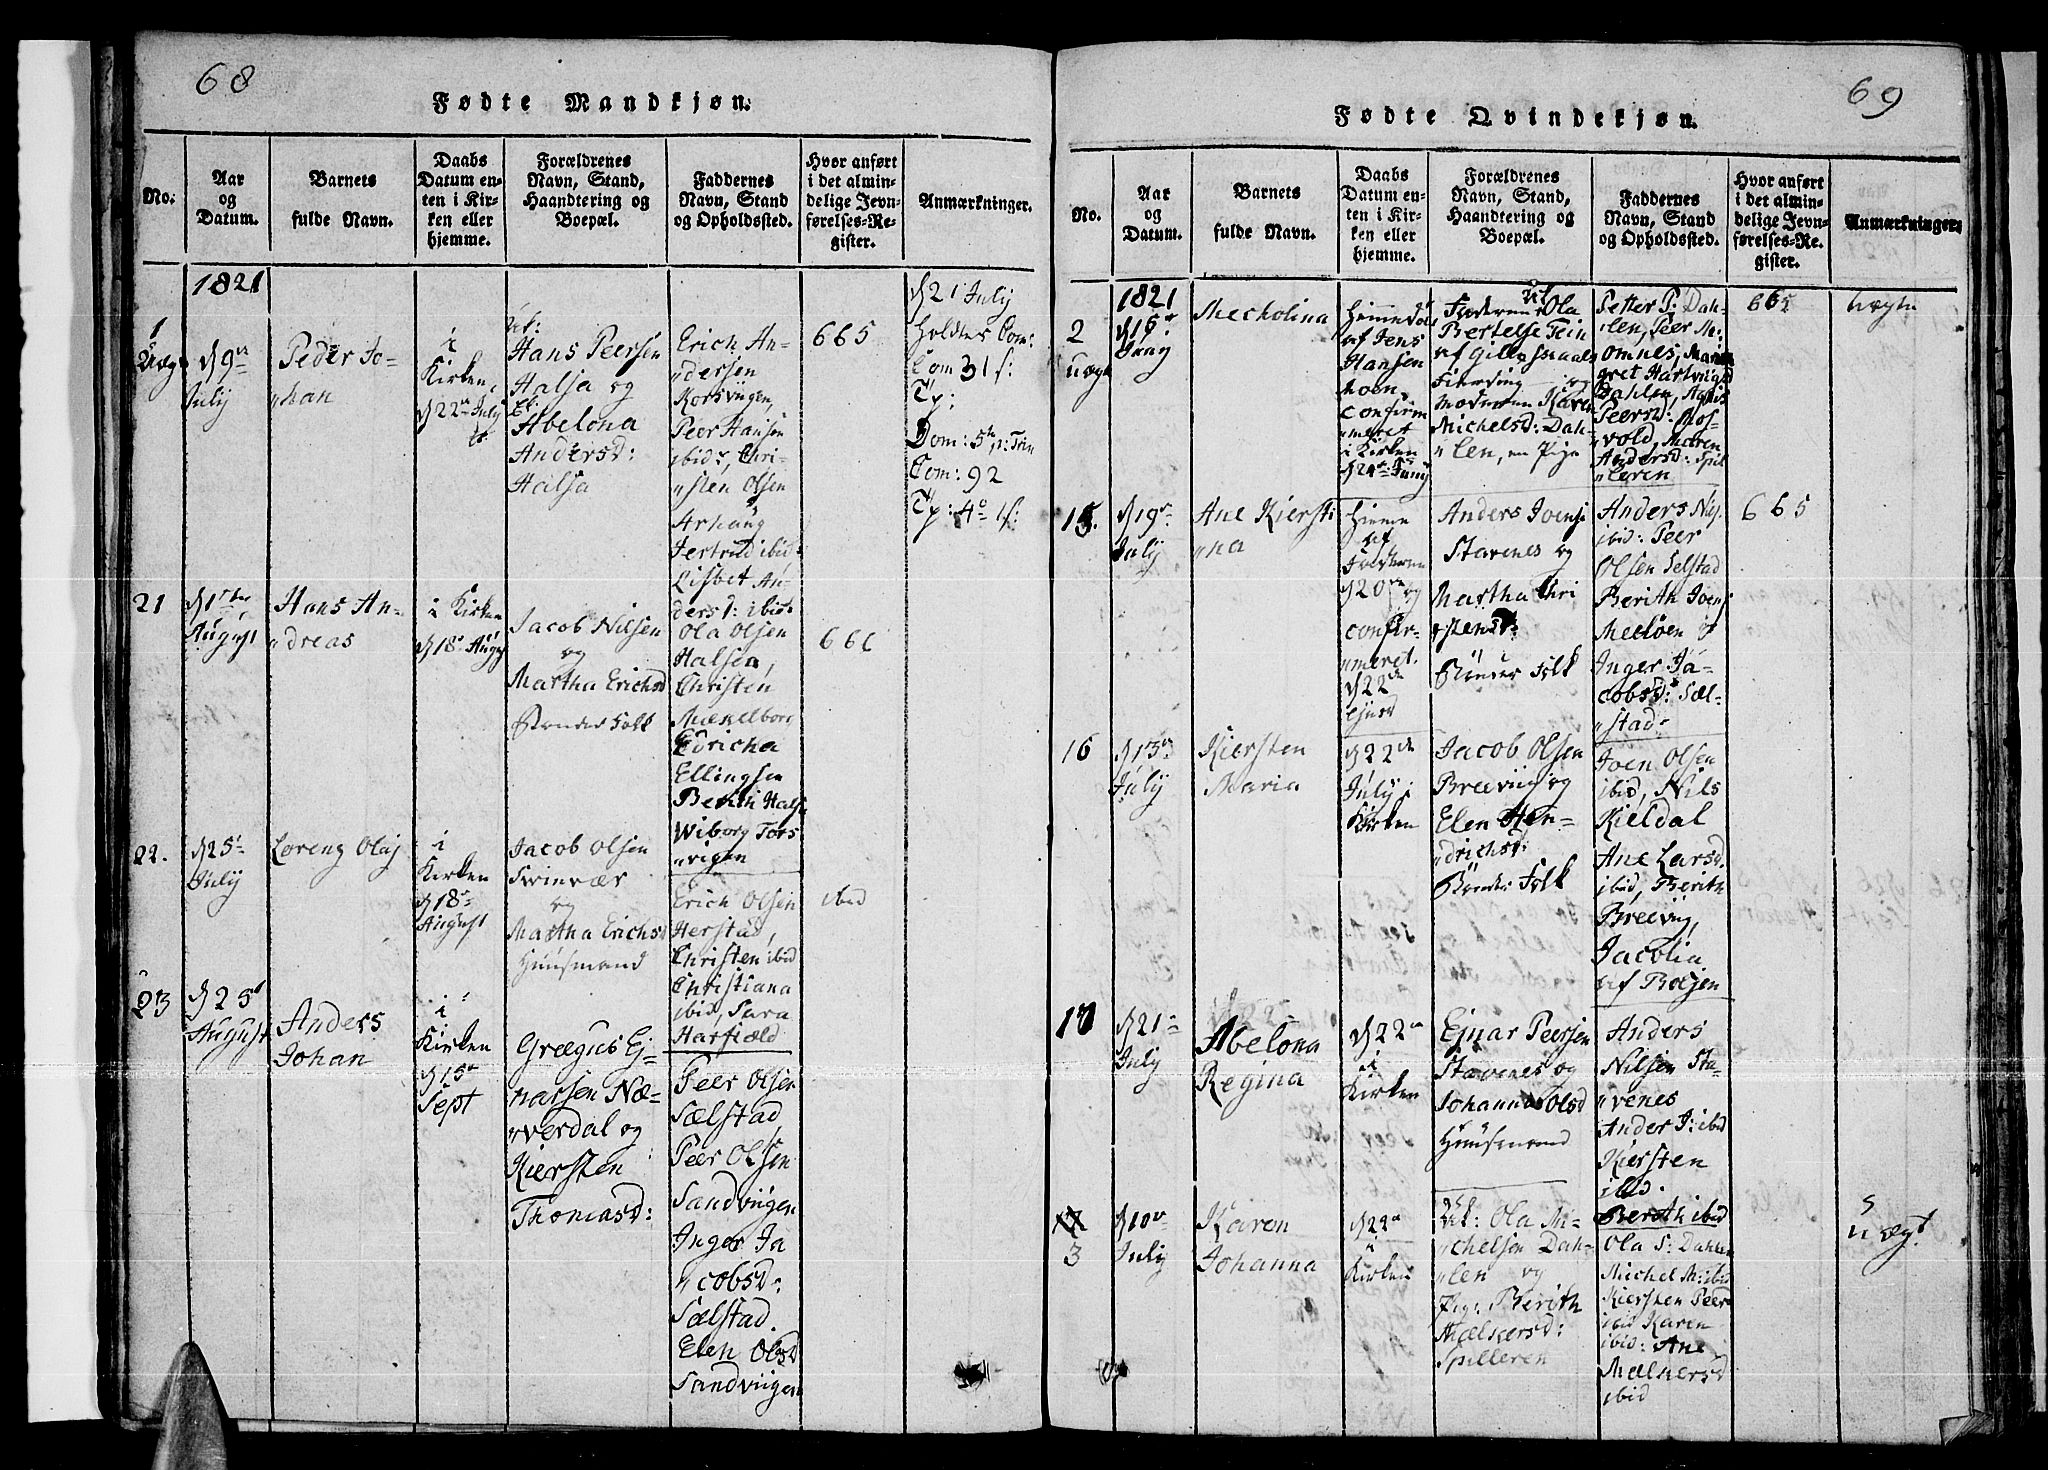 68
Fødte Mandkjøn.
No.
Aar
og
Datum.
Barnets
fulde Navn.
Daabs
Datum en-
ten i Kir-
ken eller
hjemme.
Forældrenes
Navn, Stand,
Haandtering og
Boepæl.
Faddernes
Navn, Stand
og Opholdssted.
Hvor anført
i det almin-
delige Jevn-
førelses-Re-
gister.
Anmærkninger.
1821
1
d 9
July
Peder Jo-
"han
i
Kirken,
d 22 July
Hans Peersen
Halsa og
Abelona
Andersd:
Halsa
Erich An-
"dersen
Korsviigen,
Peer Hansen
ibid, Chri-
"sten Olsen
Arhaug
Jertrud ibid
Lisbet An-
dersd: ibid
665
d 21 July
Com 31 f:
Dom: 5
Com: 92
21
August
Hans An-
"dreas
i Kirken
d 18 Augus
Jacob Nilsen
og
Martha Erichsd
Bønder Folk
Ola Olsen
Halsen,
Christen
Mækelborg
Edricha
Ellingsen
Berith Hals
Wiborg Tors
"vigen
666
22.
d 25
July
Loreng Olaj
i
Kirken
d 18
August
Jacob Olsen
Svinvær
og
Martha Erichsd
Huusmand
Erich Olsen
Herstad,
Christen ibid
Christiana
ibid, Sara
Harfiæld
ibid
23
d 25
August
Anders
Johan
i
Kirken
d 15
Sept
Græegus Ej-
narsen Næ-
"verdal og
Kiersten
Thomasd:
Peer Olsen
Sælstad,
Peer Olsen
Sandviigen
Inger Ja
"cobsd:
Sælstad.
Elen Olsd
Sandviigen
69
Fødte Qvindekjøn.
No.
Aar
og
Datum.
Barnets
fulde Navn.
Daabs
Datum en-
ten i Kir-
ken eller
hjemme.
Forældrenes
Navn, Stand,
Haandtering og
Boepæl.
Faddernes
Navn, Stand
og Opholdssted.
Hvor anført
i det almin-
delige Jevn-
førelses-Re-
gister.
Anmærkninger
1821
2
uægt
d 15
Juny
Mecholina
af Jens
Hansen
Moen,
confirm
"meret
i Kirken
d 24 Juny
Faderen Ola
Bertelse Fein
af Gillesaal
Fierding og
Moderen Karen
Michelsd: Dah-
"len, en Pige
Petter P: Dah-
"len, Peer M:
omnes, Mar
gret Hartvigsd
Dahlen,
Peersd: Mos-
"vold, Maren
Andersd: Spil
"leren
665
uægte
15.
d 19
July
Ane Kiersti
"na
Hiemme
af
Faderen
d 20 og
confir-
"meret
d 22
ejusd
Anders Joens
Stavenes og
Martha Chri
"stensd:
Bønder Folk
Anders Nils
ibid: Peer
Olsen Selstad
Berith Joens
Medøen og
Inger Ja-
cobsd: Sæl-
"stad.
665
16
d 15
July
Kiersten
Maria
d 22
July i
Kirken
Jacob Olsen
Breeviig og
Elen Hen-
"drichsd:
Bønder Folk
Joen Olsen
ibid, Nils
Kieldal
Ane Larsd.
ibid, Berith
Breeviig,
Jacobia
af Bolsen
17
d 21
July
Abelona
Regina
d 22
i
Kirken
Ejnar Peersen
Stavenes og
Johanna Olsd
Huusmand
Anders
Nilsen Sta-
"venes
Ander J: ibid
Kiersten
ibid.
Berith ibid
3
d 10
July
Karen
Johanna
d 22
Kirken
Ola Mi-
"chelsen Dah-
"len og
Pige Berith
Mælkersd:
Spilleren
Ola S: Dahlen
Michel M: ibid
Kiersten Peer
ibid Karen
ibid: Ane
Mælkersd
ibid
uægt